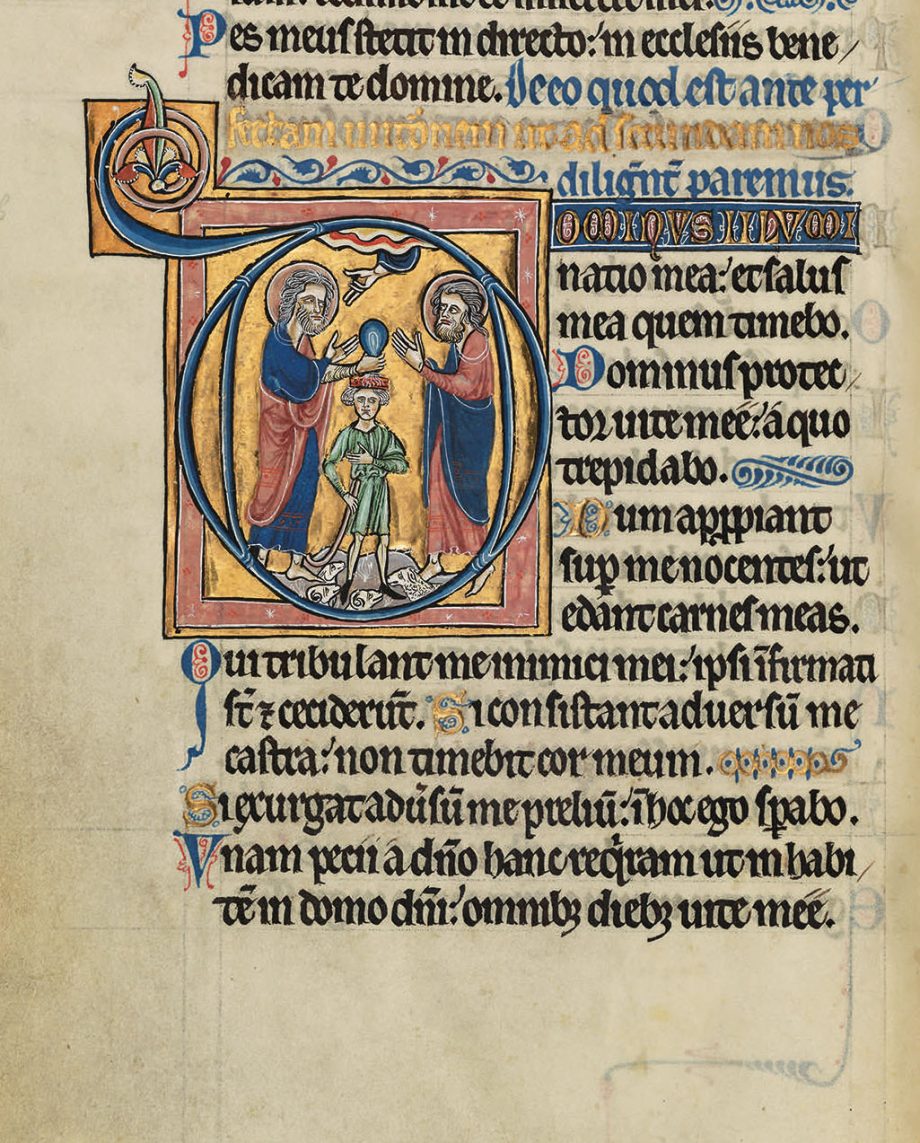 Pes meus stetit in directo: in ecclesiis bene
dicam te domine. De eo quod est ante per
fectam unctōnem ut ad secundam nos
diligēnt̄ paremus.
DOMINUS ILLUMI
natio mea: et salus
mea quem timebo.
Dominus protec
tor uite meę: a quo
trepidabo.
Dum apꝓpiant
suꝑ me nocentes: ut
edant carnes meas.
Qui tribulant me inimici mei: ipsi īfirmati
st̄ ⁊ ceciderūt. Si consistant aduersū me
castra: non timebit cor meum.
Si exurgat adūsū me preliū: ī hoc ego sꝑabo.
Vnam pecii a dn̄o hanc reqͥram ut inhabi
tē in domo dn̄i: omnibꝫ diebꝫ uite meę.